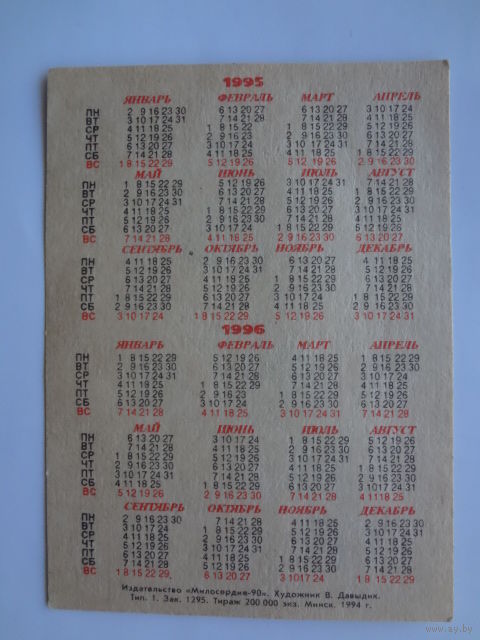 1995
ЯНВАРЬ ФЕВРАЛЬ МАРТ АПРЕЛЬ
ПН 2 9 16 23 30 6 13 20 27 6 13 20 27 3 10 17 24
ВТ 3 10 17 24 31 7 14 21 28 7 14 21 28 4 11 18 25
СР 4 11 18 25 1 8 15 22 1 8 15 22 29 5 12 19 26
ЧТ 5 12 19 26 2 9 16 23 2 9 16 23 30 6 13 20 27
ПТ 6 13 20 27 3 10 17 24 3 10 17 24 31 7 14 21 28
СБ 7 14 21 28 4 11 18 25 4 11 18 25 1 8 15 22 29
ВС 1 8 15 22 29 5 12 19 26 5 12 19 26 2 9 16 23 30
МАЙ ИЮНЬ ИЮЛЬ АВГУСТ
ПН 1 8 15 22 29 5 12 19 26 3 10 17 24 31 7 14 21 28
ВТ 2 9 16 23 30 6 13 20 27 4 11 18 25 1 8 15 22 29
СР 3 10 17 24 31 7 14 21 28 5 12 19 26 2 9 16 23 30
ЧТ 4 11 18 25 1 8 15 22 29 6 13 20 27 3 10 17 24 31
ПТ 5 12 19 26 2 9 16 23 30 7 14 21 28 4 11 18 25
СБ 6 13 20 27 3 10 17 24 1 8 15 22 29 5 12 19 26
ВС 7 14 21 28 4 11 18 25 2 9 16 23 30 6 13 20 27
СЕНТЯБРЬ ОКТЯБРЬ НОЯБРЬ ДЕКАБРЬ
ПН 4 11 18 25 2 9 16 23 30 6 13 20 27 4 11 18 25
ВТ 5 12 19 26 3 10 17 24 31 7 14 21 28 5 12 19 26
СР 6 13 20 27 4 11 18 25 1 8 15 22 29 6 13 20 27
ЧТ 7 14 21 28 5 12 19 26 2 9 16 23 30 7 14 21 28
ПТ 1 8 15 22 29 6 13 20 27 3 10 17 24 1 8 15 22 29
СБ 2 9 16 23 30 7 14 21 28 4 11 18 25 2 9 16 23 30
ВС 3 10 17 24 1 8 15 22 29 5 12 19 26 3 10 17 24 31
1996
ЯНВАРЬ ФЕВРАЛЬ МАРТ АПРЕЛЬ
ПН 1 8 15 22 29 5 12 19 26 4 11 18 25 1 8 15 22 29
ВТ 2 9 16 23 30 6 13 20 27 5 12 19 26 2 9 16 23 30
СР 3 10 17 24 31 7 14 21 28 6 13 20 27 3 10 17 24
ЧТ 4 11 18 25 1 8 15 22 29 7 14 21 28 4 11 18 25
ПТ 5 12 19 26 2 9 16 23 1 8 15 22 29 5 12 19 26
СБ 6 13 20 27 3 10 17 24 2 9 16 23 30 6 13 20 27
ВС 7 14 21 28 4 11 18 25 3 10 17 24 31 7 14 21 28
МАЙ ИЮНЬ ИЮЛЬ АВГУСТ
ПН 6 13 20 27 3 10 17 24 1 8 15 22 29 5 12 19 26
ВТ 7 14 21 28 4 11 18 25 2 9 16 23 30 6 13 20 27
СР 1 8 15 22 29 5 12 19 26 3 10 17 24 31 7 14 21 28
ЧТ 2 9 16 23 30 6 13 20 27 4 11 18 25 1 8 15 22 29
ПТ 3 10 17 24 31 7 14 21 28 5 12 19 26 2 9 16 23 30
СБ 4 11 18 25 1 8 15 22 29 6 13 20 27 3 10 17 24 31
ВС 5 12 19 26 2 9 16 23 30 7 14 21 28 4 11 18 25
СЕНТЯБРЬ ОКТЯБРЬ НОЯБРЬ ДЕКАБРЬ
ПН 2 9 16 23 30 7 14 21 28 4 11 18 25 2 9 16 23 30
ВТ 3 10 17 24 1 8 15 22 29 5 12 19 26 3 10 17 24 31
СР 4 11 18 25 2 9 16 23 30 6 13 20 27 4 11 18 25
ЧТ 5 12 19 26 3 10 17 24 31 7 14 21 28 5 12 19 26
ПТ 6 13 20 27 4 11 18 25 1 8 15 22 29 6 13 20 27
СБ 7 14 21 28 5 12 19 26 2 9 16 23 30 7 14 21 28
ВС 1 8 15 22 29 6 13 20 27 3 10 17 24 1 8 15 22 29
Издательство «Милосердие-90». Художник В. Давыдик.
Тип. 1. Зак. 1295. Тираж 200 000 экз. Минск. 1994 г.
www.ay.by